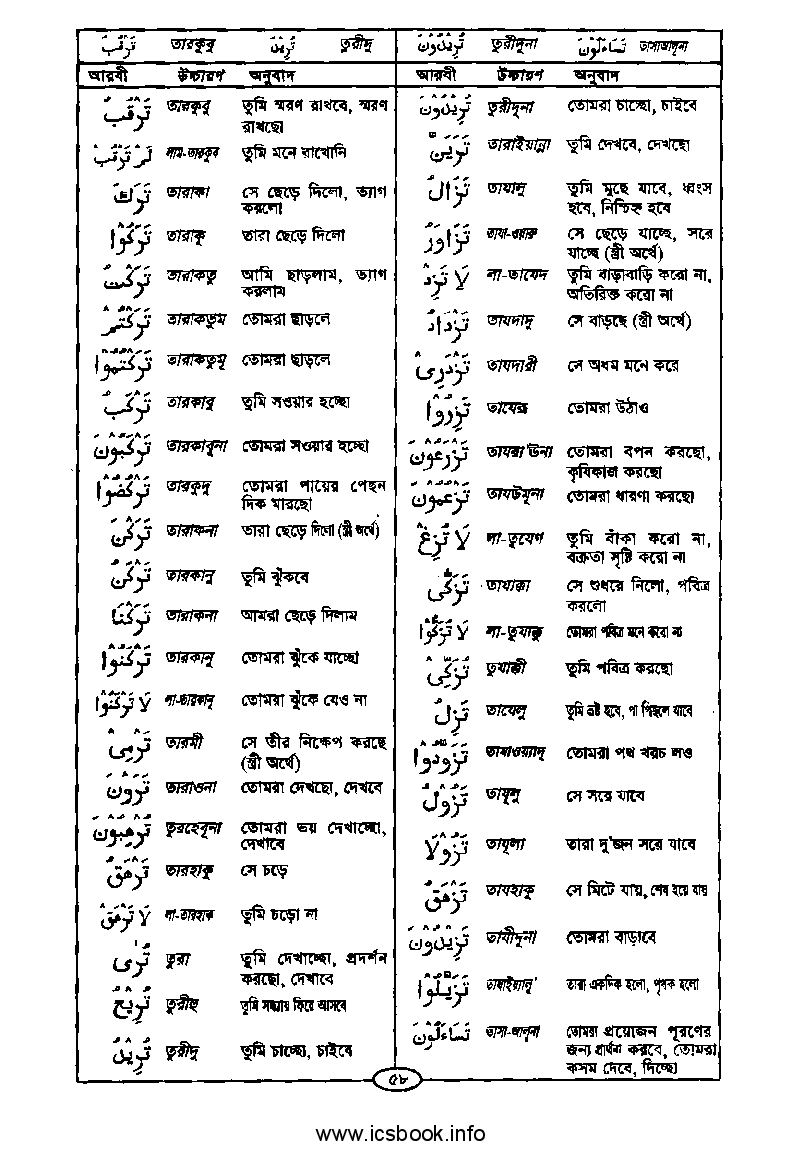 تَرْقُبُ তারকুবু تُرِيْدُ তুরীদু
আরবী উচ্চারণ অনুবাদ
تَرْقُبُ তারকুবু তুমি স্মরণ রাখবে, স্মরণ
রাখছো
لَمْ تَرْقُبْ লাম-তারকুব তুমি মনে রাখোনি
تَرَكَ তারাকা সে ছেড়ে দিলো, ত্যাগ
করলো
تَرَكُوْا তারাকু তারা ছেড়ে দিলো
تَرَكْتُ তারাকতু আমি ছাড়লাম, ত্যাগ
করলাম
تَرَكْتُمْ তারাকতুম তোমরা ছাড়লে
تَرَكْتُمُوْا তারাকতুমূ তোমরা ছাড়লে
تَرْكَبُ তারকাবু তুমি সওয়ার হচ্ছো
تَرْكَبُوْنَ তারকাবুনা তোমরা সওয়ার হচ্ছো
تَرْكُضُوْا তারকুদু তোমরা পায়ের পেছন
দিক মারছো
تَرَكْنَ তারাকনা তারা ছেড়ে দিলো (স্ত্রী অর্থে)
تَرْكَنُ তারকানু তুমি ঝুঁকবে
تَرَكْنَا তারাকনা আমরা ছেড়ে দিলাম
تَرْكَنُوْا তারকানু তোমরা ঝুঁকে যাচ্ছো
لَا تَرْكَنُوْا লা-তারকানু তোমরা ঝুঁকে যেও না
تَرْمِيْ তারমী সে তীর নিক্ষেপ করছে
(স্ত্রী অর্থে)
تَرَوْنَ তারাওনা তোমরা দেখছো, দেখবে
تُرْهِبُوْنَ তুরহেবুনা তোমরা ভয় দেখাচ্ছো,
দেখাবে
تَرْهَقُ তারহাকু সে চড়ে
لَا تَرْهَقْ লা-তারহাক তুমি চড়ো না
تُرٰى তুরা তুমি দেখাচ্ছো, প্রদর্শন
করছো, দেখাবে
تُرِيْحُ তুরীহু তুমি সন্ধ্যায় ফিরে আসবে
تُرِيْدُ তুরীদু তুমি চাচ্ছো, চাইবে
تُرِيْدُوْنَ তুরীদুনা تَسَاءَلُوْنَ তাসাআলূনা
আরবী উচ্চারণ অনুবাদ
تُرِيْدُوْنَ তুরীদুনা তোমরা চাচ্ছো, চাইবে
تَرَيِنَّ তারাইয়ান্না তুমি দেখবে, দেখছো
تَزَالُ তাযালু তুমি মুছে যাবে, ধ্বংস
হবে, নিশ্চিহ্ন হবে
تَزَاوَرُ তাযা-ওয়ারু সে ছেড়ে যাচ্ছে, সরে
যাচ্ছে (স্ত্রী অর্থে)
لَا تَزِدْ লা-তাযেদ তুমি বাড়াবাড়ি করো না,
অতিরিক্ত করো না
تَزْدَادُ তাযদাদু সে বাড়ছে (স্ত্রী অর্থে)
تَزْدَرِيْ তাযদারী সে অধম মনে করে
تَزِرُوْا তাযেরু তোমরা উঠাও
تَزْرَعُوْنَ তাযরাউনা তোমরা বপন করছো,
কৃষিকাজ করছো
تَزْعُمُوْنَ তাযউমূনা তোমরা ধারণা করছো
لَا تُزِغْ লা-তুযেগ তুমি বাঁকা করো না,
বক্রতা সৃষ্টি করো না
تَزَكّٰى তাযাক্কা সে শুধরে নিলো, পবিত্র
করলো
لَا تُزَكُّوْا লা-তুযাক্কু তোমরা পবিত্র মনে করো না
تُزَكِّيْ তুযাক্কী তুমি পবিত্র করছো
تَزِلُّ তাযেলু তুমি ভ্রষ্ট হবে, পা পিছলে যাবে
تَزَوَّدُوْا তাযাওয়্যাদু তোমরা পথ খরচ লও
تَزُوْلُ তাযূলু সে সরে যাবে
تَزُوْلَا তাযূলা তারা দু'জন সরে যাবে
تَزْهَقُ তাযহাকু সে মিটে যায়, শেষ হয়ে যায়
تَزِيْدُوْنَ তাযীদূনা তোমরা বাড়াবে
تَزَيَّلُوْا তাযাইয়ালু' তারা একদিক হলো, পৃথক হলো
تَسَاءَلُوْنَ তাসা-আলূনা তোমরা প্রয়োজন পূরণের
জন্য প্রার্থনা করবে, তোমরা
কসম দেবে, দিচ্ছো
৫৮
www.icsbook.info